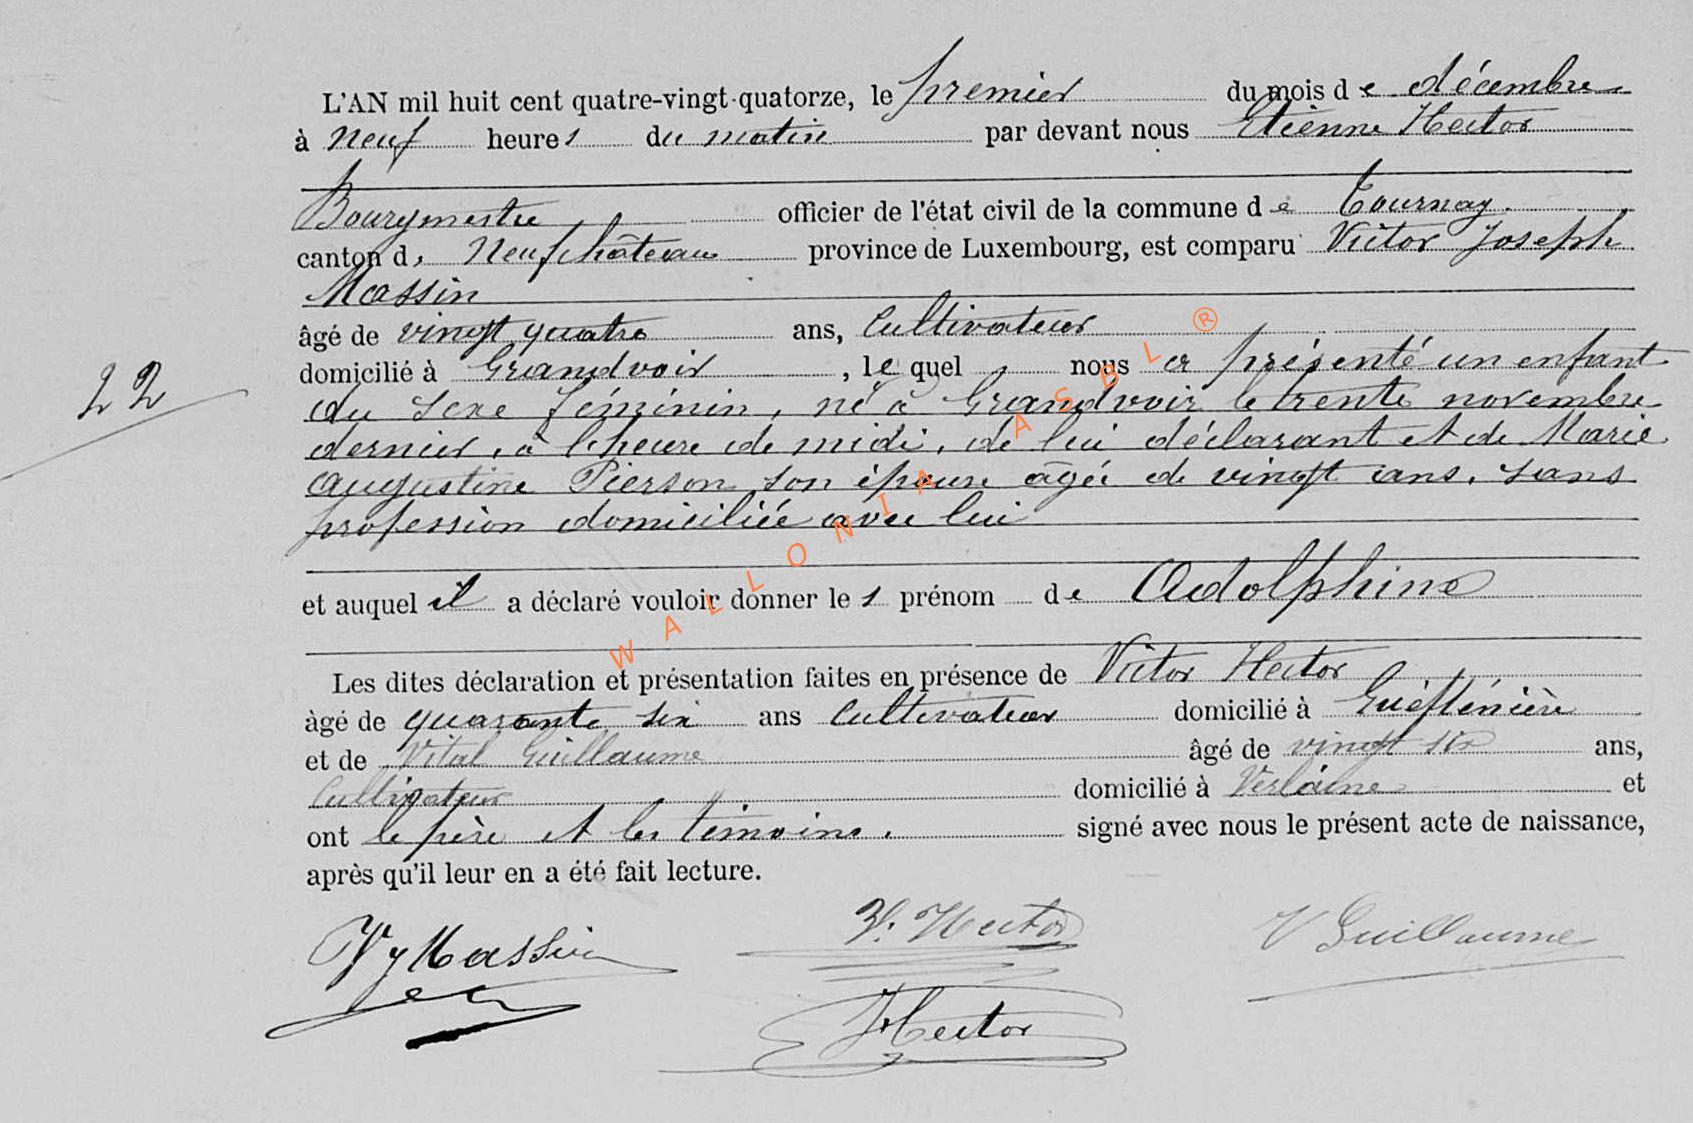 L'AN mil huit cent quatre-vingt-quatorze, le premier du mois de décembre
à neuf heures du matin par devant nous Etienne Hector
Bourgmestre officier de l'état civil de la commune de Tournay.
canton de Neufchâteau province de Luxembourg, est comparu Victor Joseph
Massin
âgé de vingt quatre ans, Cultivateur
domicilié à Grandvoir, lequel nous a présenté un enfant
22
du sexe féminin, né à Grandvoir le trente novembre
dernier, à l'heure de midi, de lui déclarant et de Marie
Augustine Pierson son épouse âgée de vingt ans, sans
profession domiciliée avec lui
et auquel il a déclaré vouloir donner les prénom de Adolphine
Les dites déclaration et présentation faites en présence de Victor Hector
âgé de quarante six ans Cultivateur domicilié à
et de Vital Guillaume âgé de vingt six ans,
Cultivateur domicilié à Verlaine et
ont le père et les témoins. signé avec nous le présent acte de naissance,
après qu'il leur en a été fait lecture.
VJ Massin V. Hector V Guillaume
Hector
WALLONIA ASBL ®